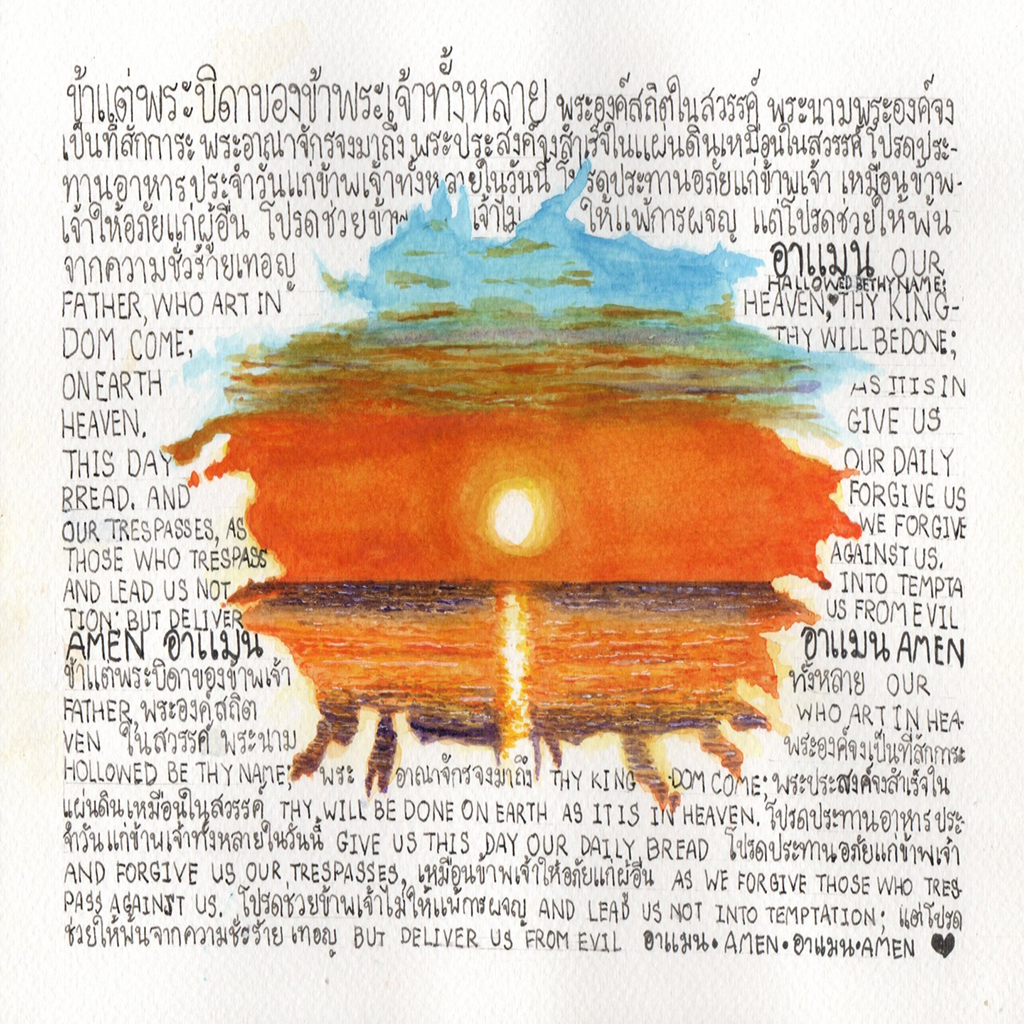 ข้าแต่พระบิดาของข้าพระเจ้าทั้งหลาย พระองค์สถิตในสวรรค์ พระนามพระองค์จง
เป็นที่สักการะ พระอาณาจักรจงมาถึง พระประสงค์จงสำเร็จในแผ่นดินเหมือนในสวรรค์ โปรดประ-
ทานอาหารประจำวันแก่ข้าพเจ้าทั้งหลายในวันนี้ โปรดประทานอภัยแก่ข้าพเจ้า เหมือนข้าพ-
เจ้าให้อภัยแก่ผู้อื่น โปรดช่วยข้าพ เจ้าไม่ ให้แพ้การผจญ แต่โปรดช่วยให้พ้น
จากความชั่วร้ายเทอญ อาแมน OUR
FATHER, WHO ART IN HEAVEN, HALLOWED BE THY NAME; THY KING-
DOM COME; THY WILL BE DONE;
ON EARTH AS IT IS IN
HEAVEN. GIVE US
THIS DAY OUR DAILY
BREAD. AND FORGIVE US
OUR TRESPASSES, AS WE FORGIVE
THOSE WHO TRESPASS AGAINST US.
AND LEAD US NOT INTO TEMPTA
TION: BUT DELIVER US FROM EVIL
AMEN อาแมน อาแมน AMEN
ข้าแต่พระบิดาของข้าพเจ้า ทั้งหลาย OUR
FATHER, พระองค์สถิต WHO ART IN HEA-
VEN ในสวรรค์ พระนาม พระองค์จงเป็นที่สักการะ
HOLLOWED BE THY NAME; พระ อาณาจักรจงมาถึง THY KING DOM COME; พระประสงค์จงสำเร็จใน
แผ่นดินเหมือนในสวรรค์ THY WILL BE DONE ON EARTH AS IT IS IN HEAVEN. โปรดประทานอาหารประ-
จำวันแก่ข้าพเจ้าทั้งหลายในวันนี้ GIVE US THIS DAY OUR DAILY BREAD โปรดประทานอภัยแก่ข้าพเจ้า
AND FORGIVE US OUR TRESPASSES, เหมือนข้าพเจ้าให้อภัยแก่ผู้อื่น AS WE FORGIVE THOSE WHO TRES-
PASS AGAINST US. โปรดช่วยข้าพเจ้าไม่ให้แพ้การผจญ AND LEAD US NOT INTO TEMPTATION; แต่โปรด
ช่วยให้พ้นจากความชั่วร้าย เทอญ BUT DELIVER US FROM EVIL อาแมน • AMEN • อาแมน • AMEN ♥